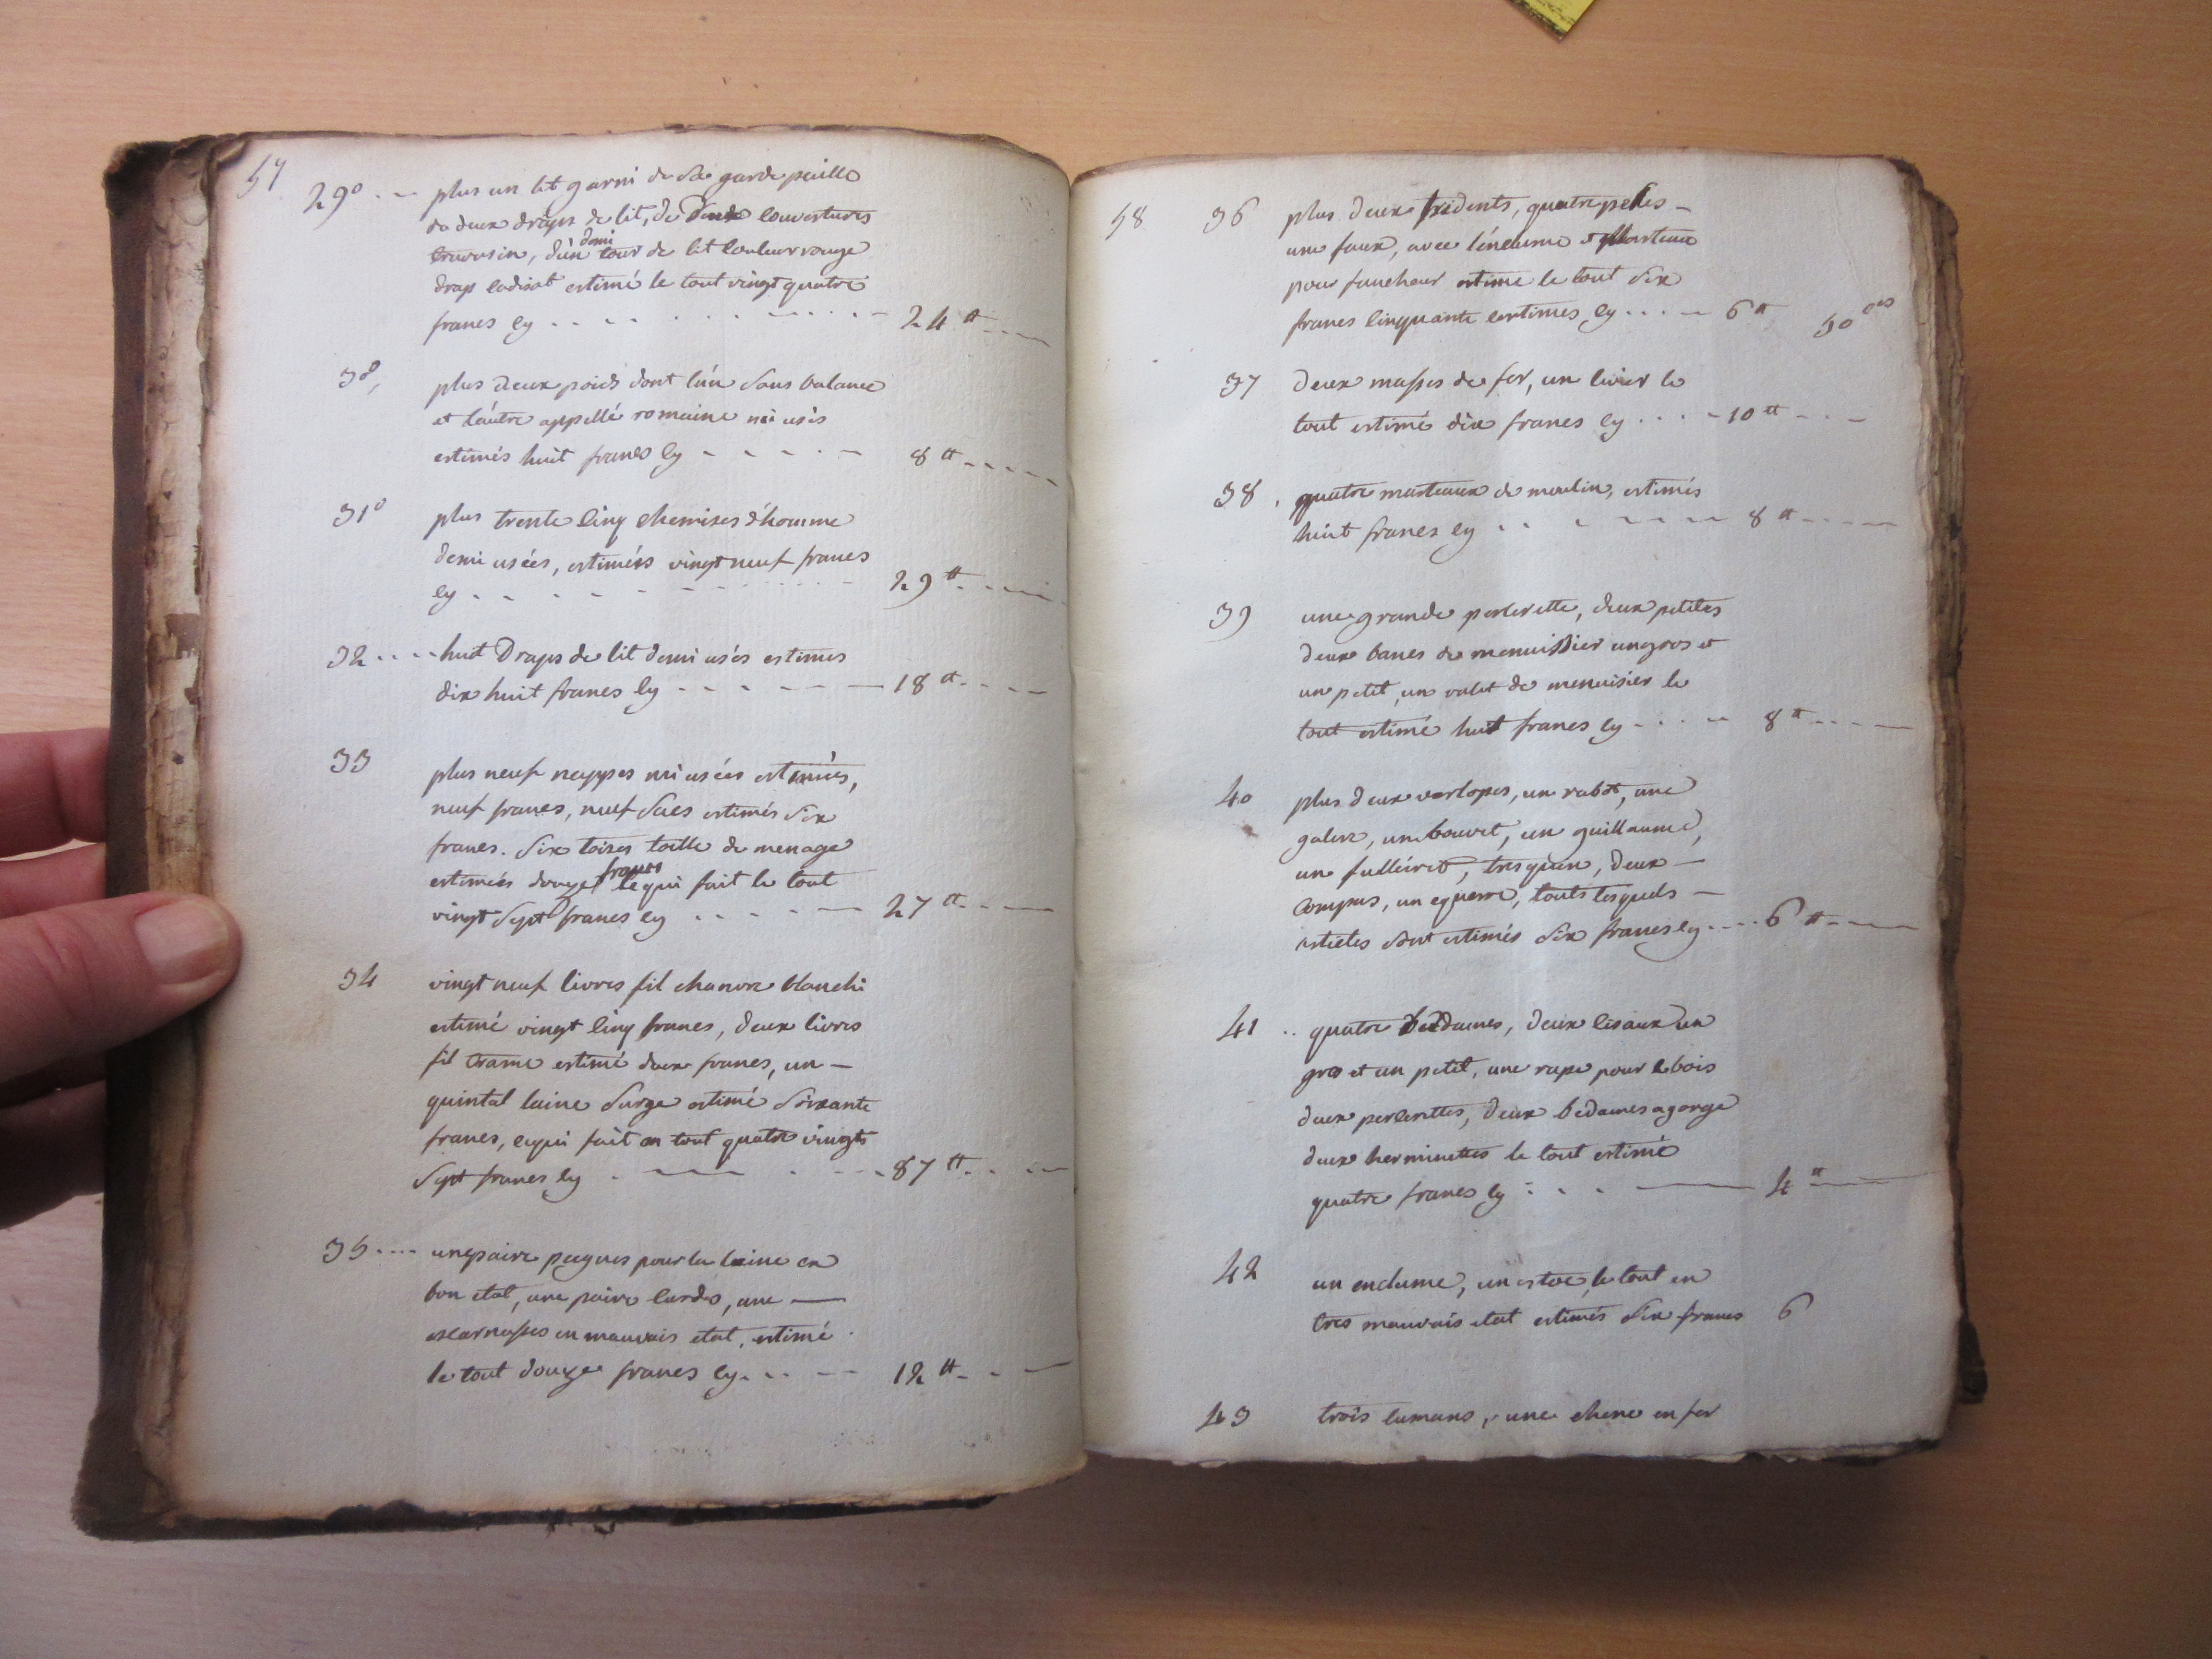 57
29° plus un lit garni de sa garde paille
de deux draps de lit, de deux couvertures
traversin, d'un demi tour de lit couleur rouge
drap cadisat estimé le tout vingt quatre
francs cy 24 ₶
30° plus deux poids dont l'un sans balance
et l'autre appellé romaine mi usés
estimés huit francs cy 8 ₶
31° plus trente cinq chemises d'homme
demi usées, estimées vingt neuf francs
cy 29 ₶
32 huit Draps de lit demi usés estimés
dix huit francs cy 18 ₶
33 plus neuf nappes mi usées estimées,
neuf francs, neuf sacs estimés six
francs. six toises toille de menage
estimées douze francs ce qui fait le tout
vingt sept francs cy 27 ₶
34 vingt neuf livres fil chanvre blanchi
estimé vingt cinq francs, deux livres
fil trame estimé deux francs, un
quintal laine surge estimé soixante
francs, cequi fait en tout quatre vingts
sept francs cy 87 ₶
35 une paire peignes pour la laine en
bon etat, une paire cardes, une
escarnasses en mauvais etat, estimé
le tout douze francs cy 12 ₶
58
36 plus deux tridents, quatre pelles
une faux, avec l'enclume et marteau
pour faucheur estimé le tout six
francs cinquante centimes cy 6 ₶ 50 ces
37 Deux masses de fer, un levier le
tout estimé dix francs cy 10 ₶
38 quatre marteaux de moulin, estimés
huit francs cy 8 ₶
39 une grande percerette, deux petites
deux bancs de menuissier un gros et
un petit, un valet de menuisier le
tout estimé huit francs cy 8 ₶
40 plus deux varlopes, un rabot, une
galere, un bouvet, un guillaume,
un fulleiret, tresquin, deux
compas, un equerre, touts lesquels
articles sont estimés six francs cy 6 ₶
41 quatre bedaunes, deux cisaux un
gros et un petit, une rape pour le bois
deux percerettes, deux bedaunes a gorge
deux herminettes le tout estimé
quatre francs cy 4 ₶
42 un enclume, un estoc, le tout en
tres mauvais etat estimés six francs 6
43 trois cumans, une chene en fer